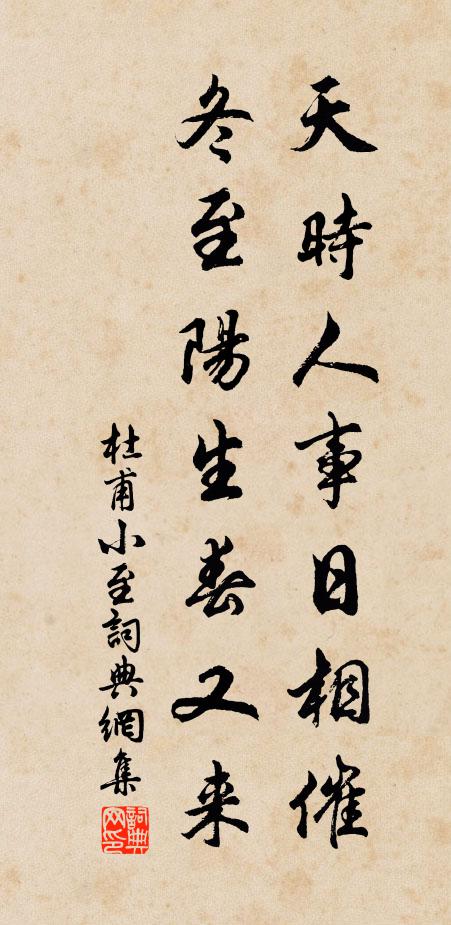 天時人事日相催
冬至陽生春又来
杜甫小至詞典網集
詞典網印